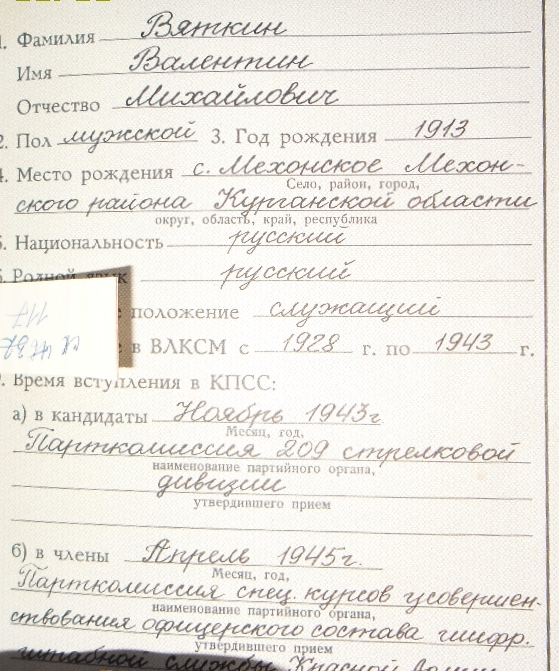 1. Фамилия Вяткин
Имя Валентин
Отчество Михайлович
2. Пол мужской 3. Год рождения 1913
4. Место рождения с. Мехонское Мехон-
Село, район, город,
ского района Курганской области
округ, область, край, республика
5. Национальность русский
6. Родной язык русский
положение служащий
в ВЛКСМ с 1928 г. по 1943 г.
Время вступления в КПСС:
а) в кандидаты Ноябрь 1943г
Месяц, год,
Парткомиссия 209 стрелковой
наименование партийного органа,
дивизии
утвердившего прием
б) в члены Апрель 1945г.
Месяц, год,
Парткомиссия спец. курсов усовершен-
наименование партийного органа,
ствования офицерского состава шифр.
утвердившего прием
штабной службы Красной Армии